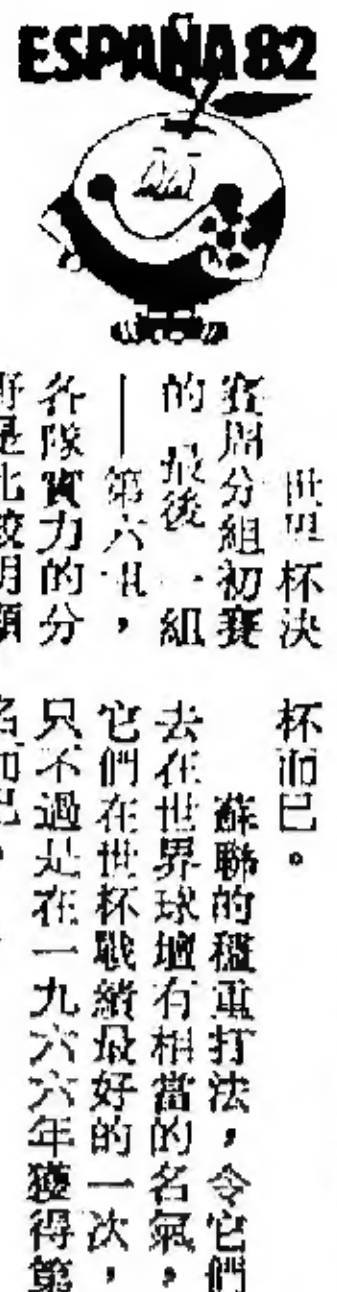 ESPAÑA 82
世界杯決
賽周分組初賽
的最後一組
——第六組，
各隊實力的分
野是比較明顯
杯而已。
蘇聯的穩重打法，令它們
去在世界球壇有相當的名氣，
它們在世杯戰績最好的一次，
只不過是在一九六六年獲得第
名而已。